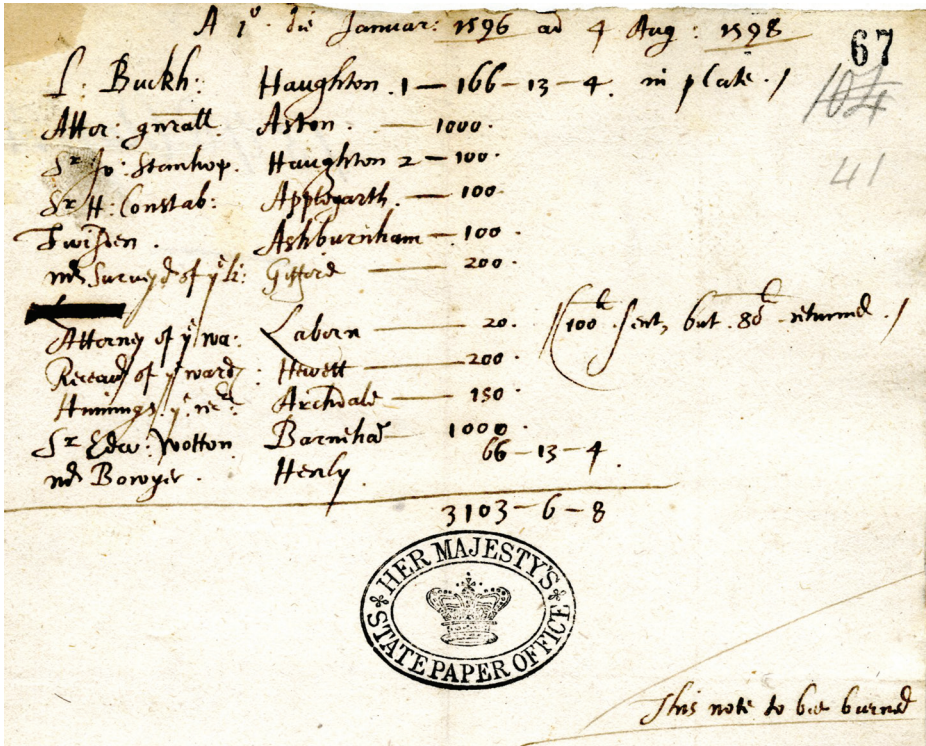 A 1º. die Januar: 1596 ad 4 Aug: 1598
67
104
41
L: Buckh: Haughton .1 — 166 – 13 – 4. in plate. /
Attor: gnrall. Aston. — 1000.
Sr Jo: Stanhop. Haughton 2 — 100.
Sr H: Constab: Applegarth. — 100.
Twisden. Ashburnham — 100.
Survey of ye li: Gifford — 200.
Attorney of ye wa: Laborn — 20. (100l sent, but 80l returned. /
Receav of ye ward: Hewett — 200.
Hunnings ye Archdale — 150
Sr Edw: Wotton Barneha — 1000.
Bowyer. Henly. 66 – 13 – 4.
3103 – 6 – 8
HER MAJESTY'S
STATE PAPER OFFICE
This note to bee burned